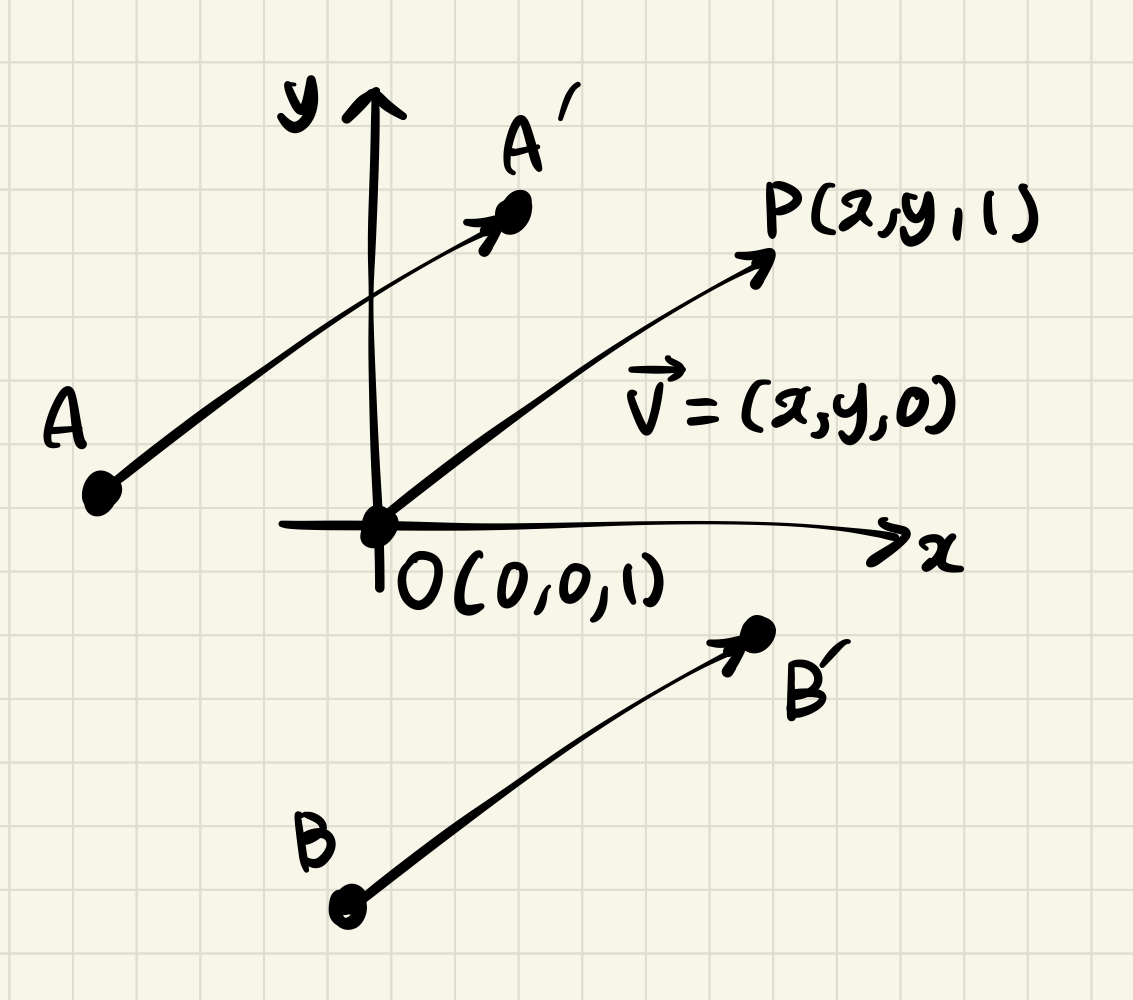 y
A′
P(x,y,1)
A
V⃗ = (x,y,0)
x
O(0,0,1)
B′
B